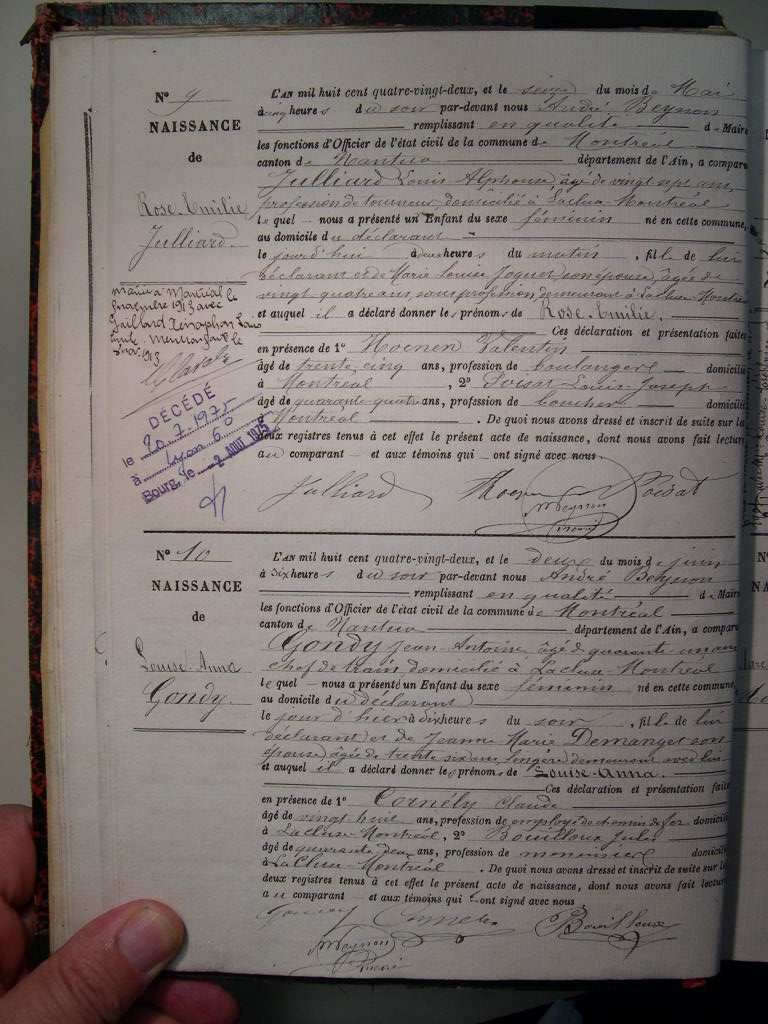 N° 9
NAISSANCE
de
Rose-Emilie
Julliard.
DÉCÉDÉ
le 20.7.1975
à Lyon 6e
Bourg, le -2 AOU 1975
L'AN mil huit cent quatre-vingt-deux, et le seize du mois de Mai
à cinq heures du soir par-devant nous André Beynon
remplissant en qualité de Maire
les fonctions d'Officier de l'état civil de la commune de Montréal
canton de Nantua département de l'Ain, a comparu
Julliard Louis Alphonse, âgé de vingt sept ans,
profession de tourneur domicilié à Lacluse-Montréal
lequel nous a présenté un Enfant du sexe féminin né en cette commune,
au domicile du déclarant
le jourd'hui à heures du matin, fille de lui
déclarant et de Marie Louise son épouse, âgée de
vingt quatre ans, sans profession demeurant à Lacluse-Montréal
et auquel il a déclaré donner les prénoms de Rose-Emilie.
Ces déclaration et présentation faites
en présence de 1° Hoenen Valentin
âgé de trente cinq ans, profession de boulanger domicilié
à Montréal, 2° Poisat Louis Joseph
âgé de quarante quatre ans, profession de boucher domicilié
Montréal. De quoi nous avons dressé et inscrit de suite sur les
deux registres tenus à cet effet le présent acte de naissance, dont nous avons fait lecture
au comparant et aux témoins qui ont signé avec nous.
Julliard Hoenen Poisat
Beynon
André
N° 10
NAISSANCE
de
Louise-Anna
Gondy.
L'AN mil huit cent quatre-vingt-deux, et le deux du mois de juin
à six heures du soir par-devant nous André Beynon
remplissant en qualité de Maire
les fonctions d'Officier de l'état civil de la commune de Montréal
canton de Nantua département de l'Ain, a comparu
Gondy Jean-Antoine âgé de quarante un ans
chef de train domicilié à Lacluse-Montréal
lequel nous a présenté un Enfant du sexe féminin né en cette commune,
au domicile du déclarant
le jour d'hier à dix heures du soir, fille de lui
déclarant et de Jeanne Marie Demanget son
épouse, âgée de trente six ans, lingère demeurant avec lui
et auquel il a déclaré donner les prénoms de Louise-Anna.
Ces déclaration et présentation faites
en présence de 1° Cornély Claude
âgé de vingt huit ans, profession de employé de chemin de fer domicilié
à Lacluse-Montréal, 2° Bouilloux Jules
âgé de quarante deux ans, profession de menuisier domicilié
à Lacluse-Montréal. De quoi nous avons dressé et inscrit de suite sur les
deux registres tenus à cet effet le présent acte de naissance, dont nous avons fait lecture
au comparant et aux témoins qui ont signé avec nous
Bouilloux
Beynon
André